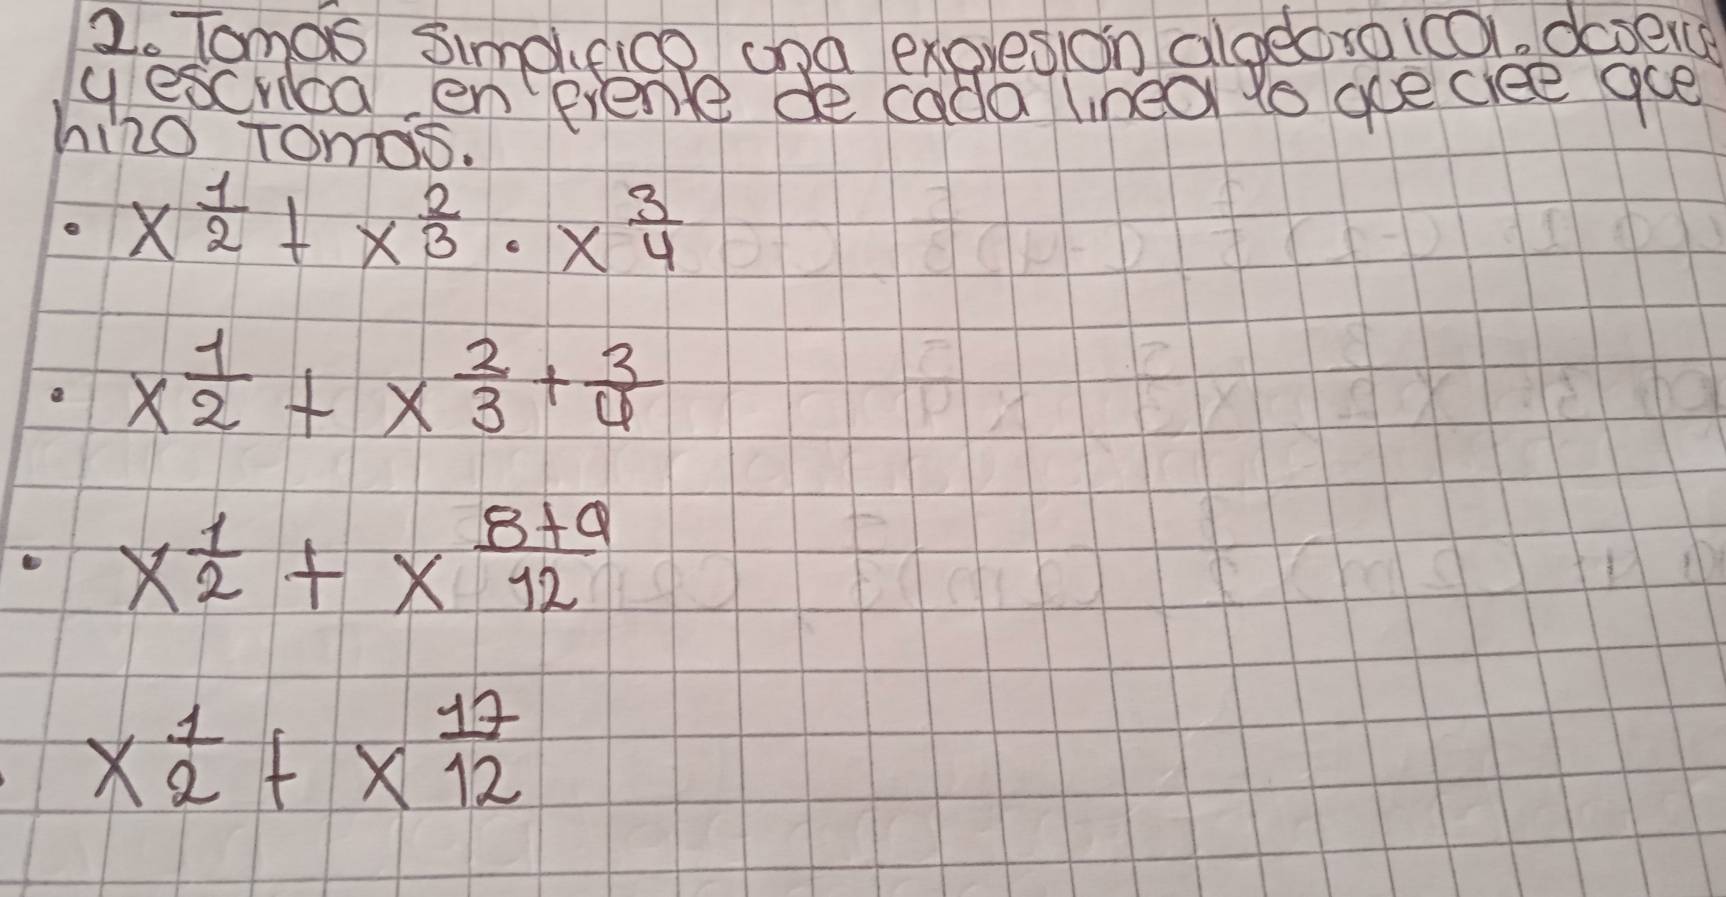 2. Tomás simplificó una expresión algebraica. observe
y escriba en frente de cada linea lo que cree que
hizo Tomás.
• x^{\frac{1}{2}} + x^{\frac{2}{3}} · x^{\frac{3}{4}}
• x^{\frac{1}{2}} + x^{\frac{2}{3} + \frac{3}{4}}
• x^{\frac{1}{2}} + x^{\frac{8+9}{12}}
• x^{\frac{1}{2}} + x^{\frac{17}{12}}